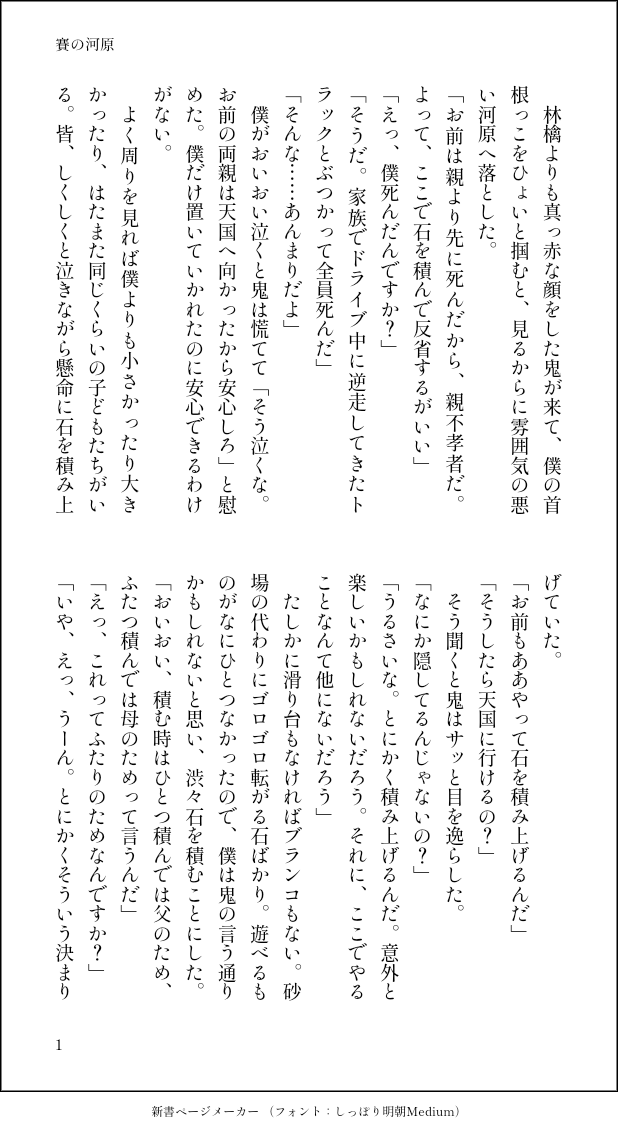 賽の河原
　林檎よりも真っ赤な顔をした鬼が来て、僕の首
根っこをひょいと掴むと、見るからに雰囲気の悪
い河原へ落とした。
「お前は親より先に死んだから、親不孝者だ。
よって、ここで石を積んで反省するがいい」
「えっ、僕死んだんですか？」
「そうだ。家族でドライブ中に逆走してきたト
ラックとぶつかって全員死んだ」
「そんな……あんまりだよ」
　僕がおいおい泣くと鬼は慌てて「そう泣くな。
お前の両親は天国へ向かったから安心しろ」と慰
めた。僕だけ置いていかれたのに安心できるわけ
がない。
　よく周りを見れば僕よりも小さかったり大き
かったり、はたまた同じくらいの子どもたちがい
る。皆、しくしくと泣きながら懸命に石を積み上
げていた。
「お前もああやって石を積み上げるんだ」
「そうしたら天国に行けるの？」
　そう聞くと鬼はサッと目を逸らした。
「なにか隠してるんじゃないの？」
「うるさいな。とにかく積み上げるんだ。意外と
楽しいかもしれないだろう。それに、ここでやる
ことなんて他にないだろう」
　たしかに滑り台もなければブランコもない。砂
場の代わりにゴロゴロ転がる石ばかり。遊べるも
のがなにひとつなかったので、僕は鬼の言う通り
かもしれないと思い、渋々石を積むことにした。
「おいおい、積む時はひとつ積んでは父のため、
ふたつ積んでは母のためって言うんだ」
「えっ、これってふたりのためなんですか？」
「いや、えっ、うーん。とにかくそういう決まり
1
新書ページメーカー （フォント：しっぽり明朝Medium）